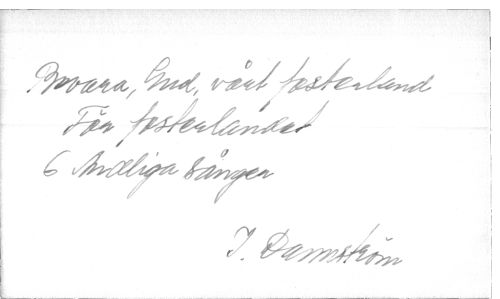 Bevara, Gud, vårt fosterland
För fosterlandet
6 Andliga sånger
J. Dannström